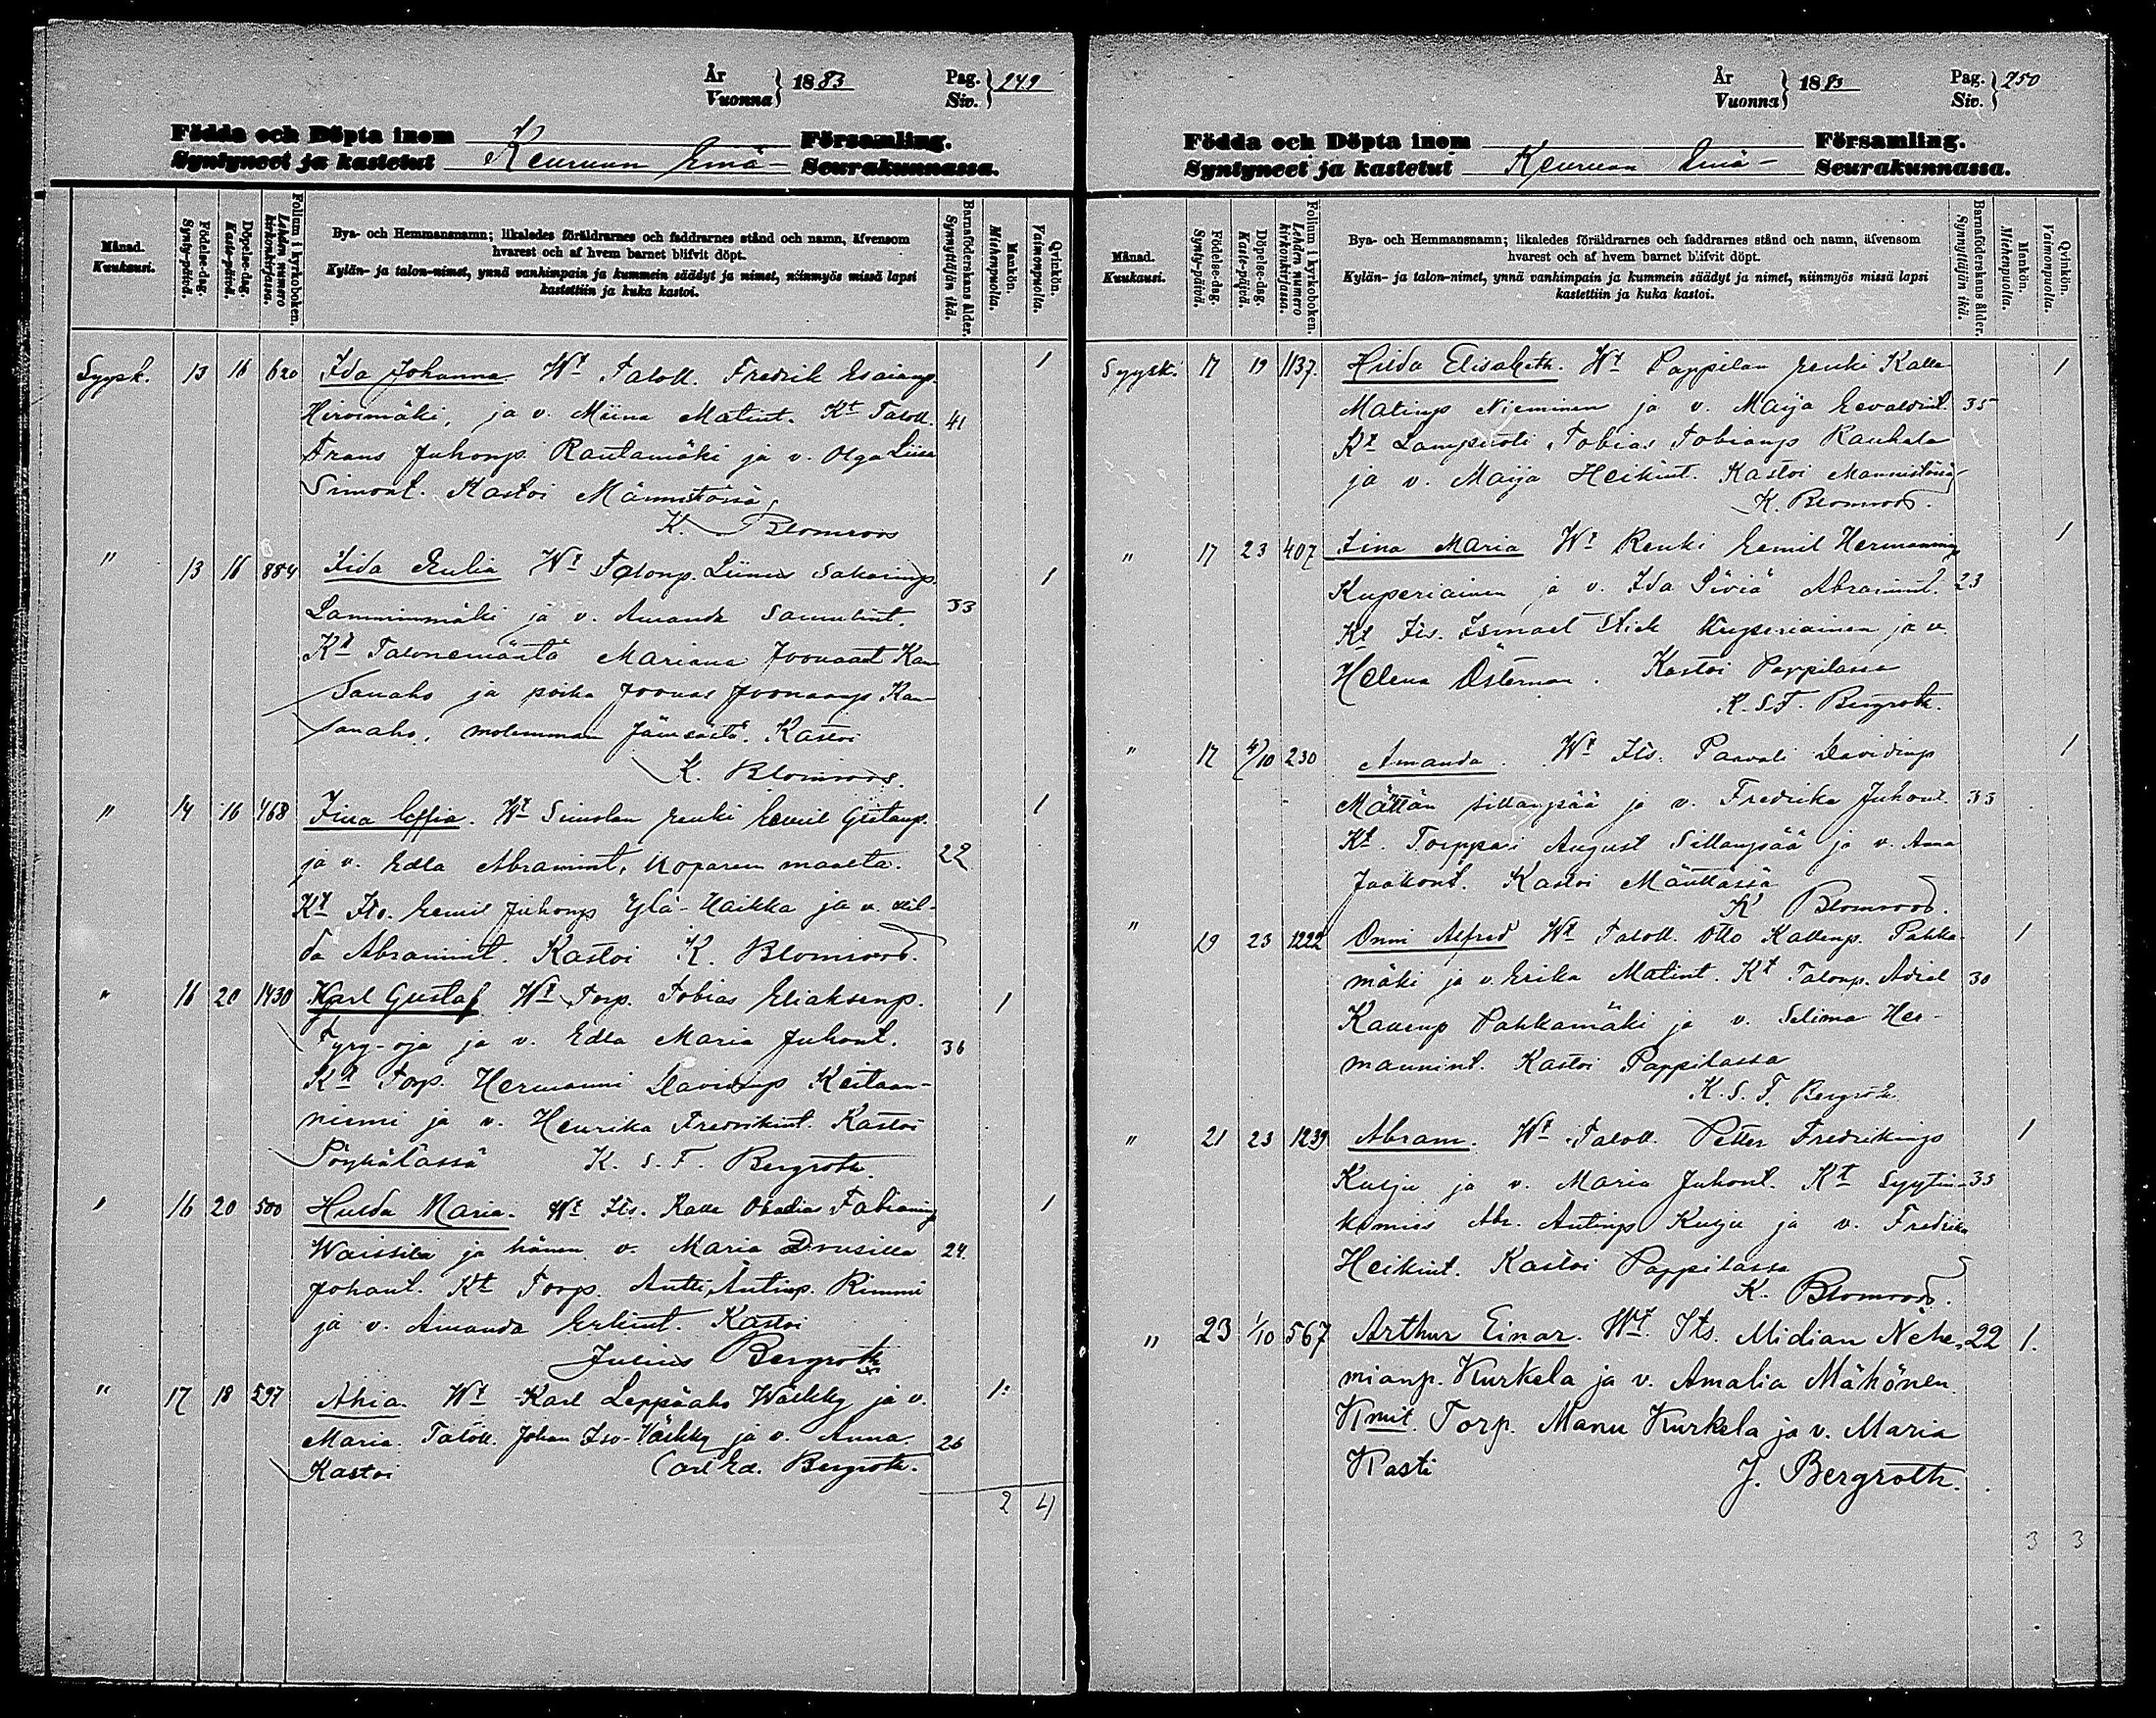 År
Vuonna } 1883 Pag.
Siv. } 249
Födda och Döpta inom
Syntyneet ja kastetut Keuruun Emä- Församling.
Seurakunnassa.
Månad.
Kuukausi.
Födelse-dag.
Synty-päivä.
Döpelse-dag.
Kaste-päivä.
Folium i kyrkoboken.
Lehden numero kirkonkirjassa.
Bya- och Hemmansnamn; likaledes föräldrarnes och faddrarnes stånd och namn, äfvensom
hvarest och af hvem barnet blifvit döpt.
Kylän- ja talon-nimet, ynnä vanhimpain ja kummein säädyt ja nimet, niinmyös missä lapsi
kastettiin ja kuka kastoi.
Barnaföderskans ålder.
Synnyttäjän ikä.
Mankön.
Miehenpuolia.
Qvinkön.
Vaimonpuolia.
Syysk. 13 16 620 Ida Johanna Wt Taloll. Fredrik Esaianp. 1
Hirvimäki, ja v. Miina Matint. Kt Taloll. 41
Frans Juhonp. Rautamäki ja v. Olga Liisa
Simont. Kastoi Männistössä
K. Blomroos
" 13 16 884 Iida Wt Talonp. Liinus Sakarinp. 1
Lamminmäki ja v. Amanda Samulint. 33
Kt Talonemäntä Mariana Joonaant Kan
Sanaho ja poika Joonas Joonaanp Kan
Sanaho, molemman Jämsästä. Kastoi
K. Blomroos.
" 14 16 468 Iina Wt Simolan renki Eemil Gustanp. 1
ja v. Edla Abramint, maalta. 22
Kt Its. Eemil Juhonp Ylä-Haikka ja v. Hil-
da Abramint. Kastoi K. Blomroos.
" 16 20 1430 Karl Gustaf Wt Torp. Tobias Eliaksenp. 1
Tyry-oja ja v. Edla Maria Juhont. 36
Kt Torp. Hermanni Davidinp Keitaan-
niemi ja v. Henrika Fredrikint. Kastoi
Pöyhölässä K. S. F. Bergroth.
" 16 20 500 Hulda Maria. Wt Its. Kalle Obadias Fabianinp 1
Waissila ja hänen v. Maria Drusilla 24.
Johant. Kt Torp. Antti Antinp. Rimmi
ja v. Amanda Erkint. Kastoi
Julius Bergroth
" 17 18 597 Ahia. Wt Karl Leppäaho Wäkky ja v. 1
Maria. Taloll. Johan Iso-Väkky ja v. Anna. 26
Kastoi Carl Ed. Bergroth.
2 4
År
Vuonna } 1883 Pag.
Siv. } 250
Födda och Döpta inom
Syntyneet ja kastetut Keuruun Emä- Församling.
Seurakunnassa.
Månad.
Kuukausi.
Födelse-dag.
Synty-päivä.
Döpelse-dag.
Kaste-päivä.
Folium i kyrkoboken.
Lehden numero kirkonkirjassa.
Bya- och Hemmansnamn; likaledes föräldrarnes och faddrarnes stånd och namn, äfvensom
hvarest och af hvem barnet blifvit döpt.
Kylän- ja talon-nimet, ynnä vanhimpain ja kummein säädyt ja nimet, niinmyös missä lapsi
kastettiin ja kuka kastoi.
Barnaföderskans ålder.
Synnyttäjän ikä.
Mankön.
Miehenpuolia.
Qvinkön.
Vaimonpuolia.
Syysk. 17 19 1137. Hilda Elisabeth. Wt Pappilan renki Kalle 1
Matinp Nieminen ja v. Maija Eevaldint. 35
Kt Lampuoti Tobias Tobianp Rauhala
ja v. Maija Heikint. Kastoi Mannistössä
K. Blomroos.
" 17 23 407 Iina Maria Wt Renki Eemil Hermanninp 1
Kuperiainen ja v. Ida Siviä Abramint. 23
Kt Its. Ismael Kuperiainen ja v.
Helena Österman. Kastoi Pappilassa
K. S. F. Bergroth.
" 17 4/10 230 Amanda. Wt Its. Paavali Davidinp 1
Mättän sillanpää ja v. Fredrika Juhont. 33
Kt. Torppari August Sillanpää ja v. Anna
Jaakont. Kastoi Mänttässä
K Blomroos.
" 19 23 1222 Onni Alfred Wt Taloll. Otto Kallenp. Pahka- 1
mäki ja v. Erika Matint. Kt Talonp. Adiel 30
Kallenp Pahkamäki ja v. Selima Her-
mannint. Kastoi Pappilassa
K. S. F. Bergroth
" 21 23 1239 Abram. Wt Taloll. Petter Fredrikinp 1
Kulju ja v. Maria Juhont. Kt Syytin- 35
kimies Abr. Antinp Kulju ja v. Fredrika
Heikint. Kastoi Pappilassa
K. Blomroos.
" 23 1/10 567 Arthur Einar. Wt. Its. Midian Nehe- 22 1.
mianp. Kurkela ja v. Amalia Mähönen.
Kmit. Torp. Manu Kurkela ja v. Maria
Kasti J. Bergroth.
3 3